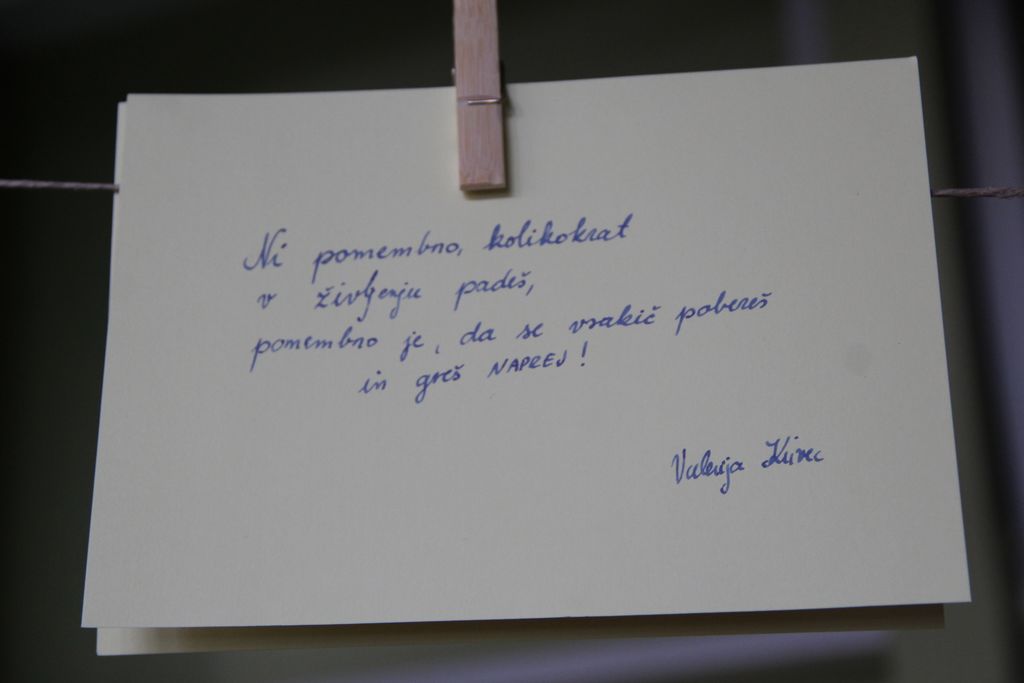 Ni pomembno, kolikokrat
v življenju padeš,
pomembno je, da se vsakič pobereš
in greš NAPREJ!
Valerija